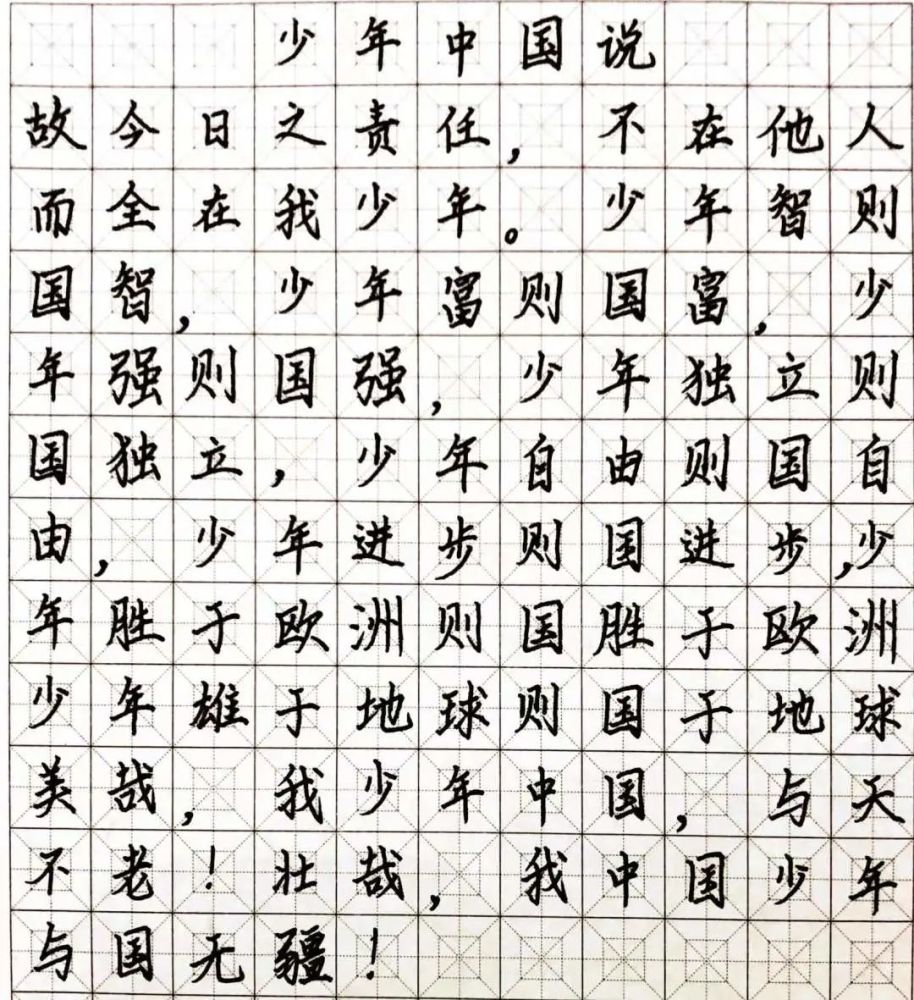 少年中国说
故今日之责任，不在他人
而全在我少年。少年智则
国智，少年富则国富，少
年强则国强，少年独立则
国独立，少年自由则国自
由，少年进步则国进步，少
年胜于欧洲则国胜于欧洲
少年雄于地球则国于地球
美哉，我少年中国，与天
不老！壮哉，我中国少年
与国无疆！